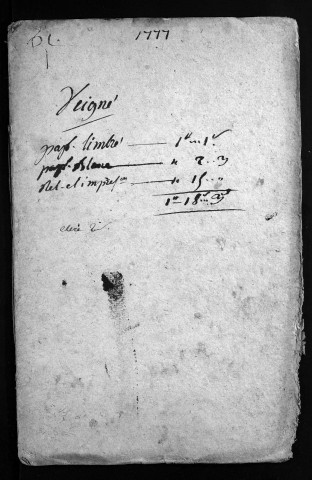 1777
Veigné
pap. timbré — 1# " 1s
pap. blanc — " 2 " 9
Rel. et impres.on — " 15 " "
1# 18s 9